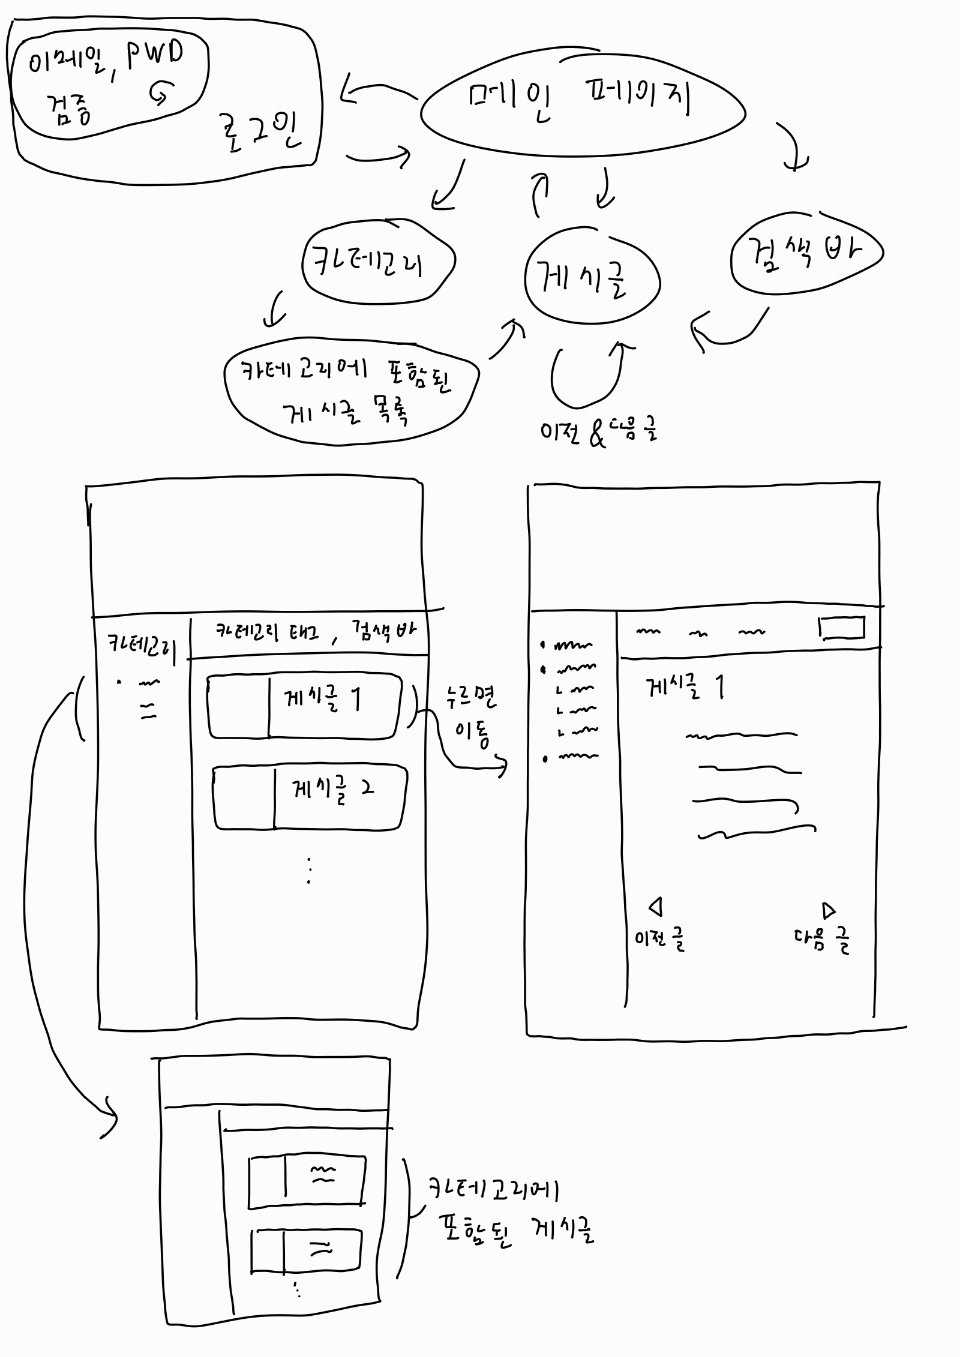 이메일, PWD
검증
로그인
메인 페이지
카테고리
게시글
검색 바
카테고리에 포함된
게시글 목록
이전 & 다음 글
카테고리
카테고리 태그, 검색 바
게시글 1
게시글 2
누르면
이동
게시글 1
이전 글
다음 글
카테고리에
포함된 게시글